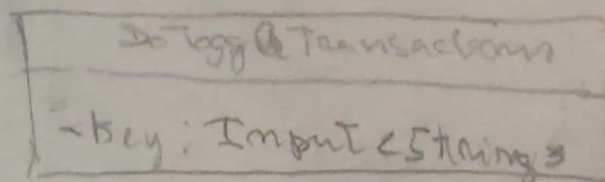 DoToggleTransaction
-Key: Input<String>